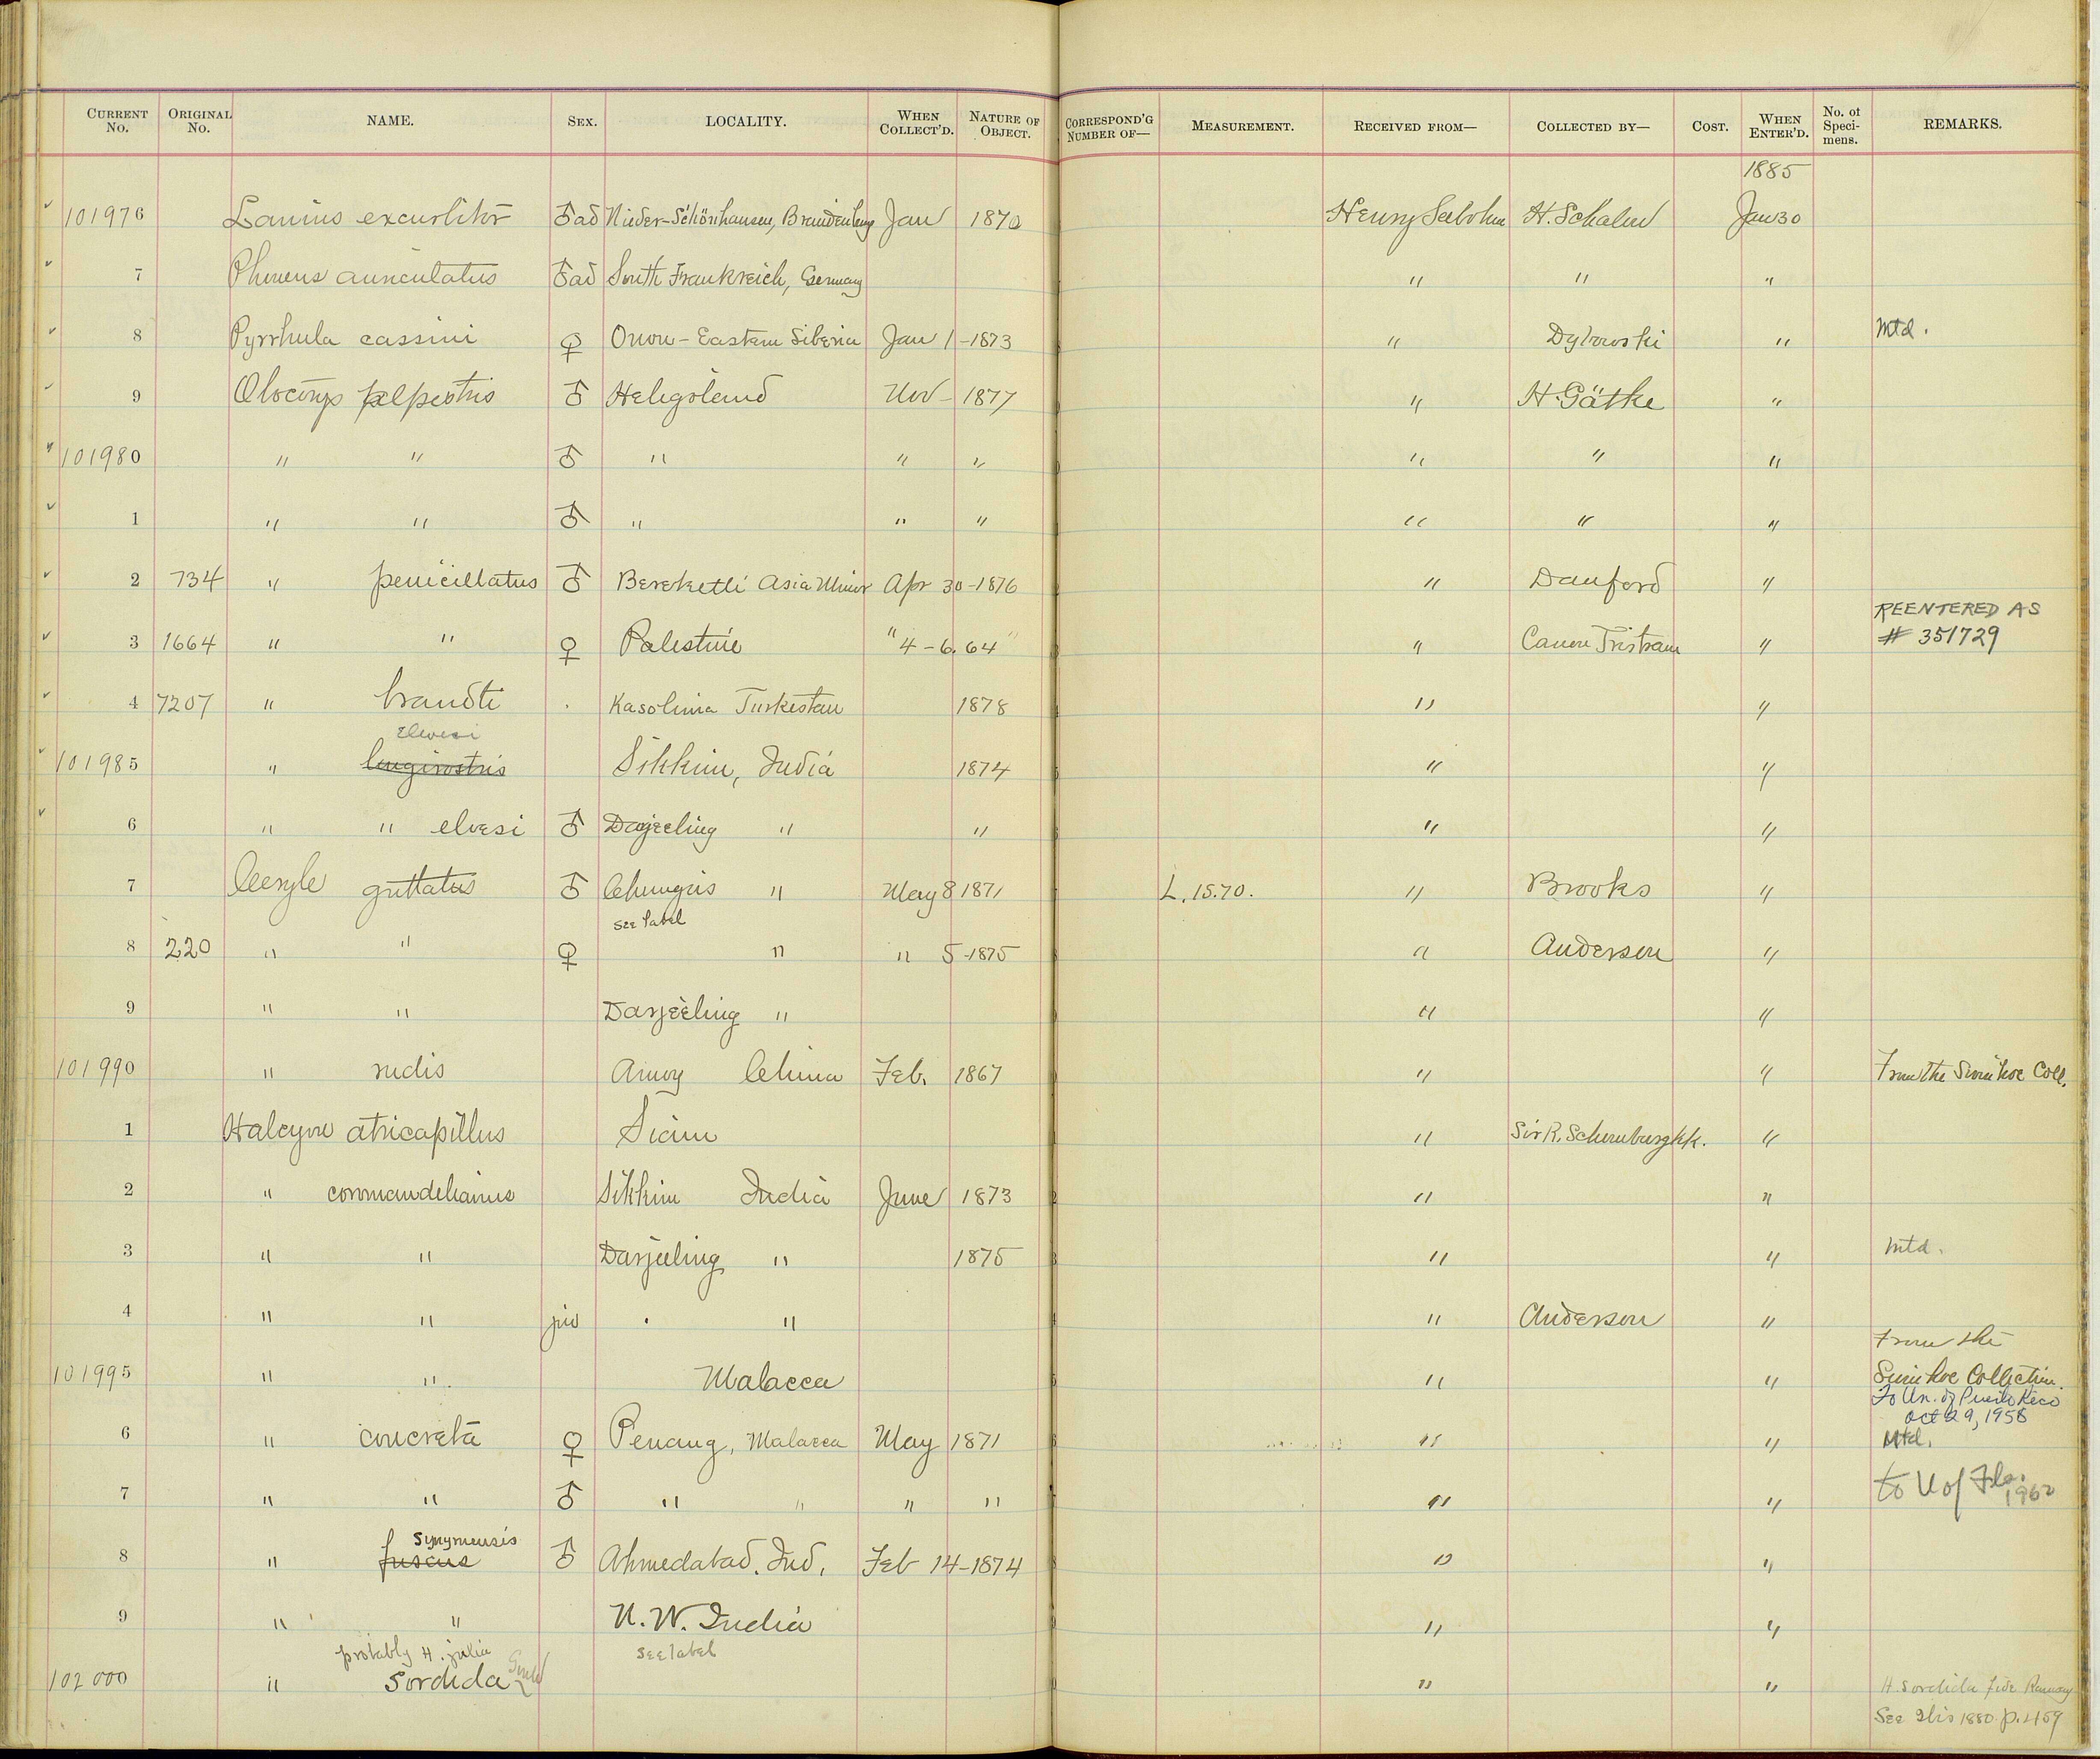 CURRENT No. ORIGINAL No. NAME. SEX. LOCALITY. WHEN COLLECT'D. NATURE OF OBJECT. CORRESPOND'G NUMBER OF— MEASUREMENT. RECEIVED FROM— COLLECTED BY— COST. WHEN ENTER'D. No. of Speci-mens. REMARKS.
1885
101976 Lanius excubitor ♂ad Nieder-Schönhausen, Brandenburg Jan 1870 Henry Seebohm H. Schalow Jan 30
7 auriculatus ♂ad South Frankreich, Germany " " "
8 Pyrrhula cassini ♀ Onon - Eastern Siberia Jan 1 - 1873 " Dybowski " Mtd.
9 Otocorys alpestris ♂ Heligoland Nov - 1877 " H. Gätke "
101980 " " ♂ " " " " " "
1 " " ♂ " " " " " "
2 734 " penicillatus ♂ Bereketli Asia Minor Apr 30-1876 " Danford "
REENTERED AS
3 1664 " " ♀ Palestine " 4-6. 64 " " Canon Tristram " # 351729
4 7207 " brandti Turkestan 1878 " "
elwesi
101985 " longirostris Sikkim, India 1874 " "
6 " " elwesi ♂ Darjeeling " " " "
7 Ceryle guttatus ♂ " May 8 1871 L. 15.70. " Brooks "
see label
8 220 " " ♀ " " 5-1875 " Anderson "
9 " " Darjeeling " " "
101990 " rudis Amoy China Feb. 1867 " " From the Swinhoe Coll.
1 Halcyon atricapillus Siam " Sir R. Schomburgkk. "
2 " coromandelianus Sikkim India June 1873 " "
3 " " Darjeeling " 1875 " " Mtd.
4 " " juv " " Anderson "
From the
101995 " " Malacca " " Swinhoe Collection.
To Un. of Puerto Rico
Oct 29, 1958
6 " concreta ♀ Penang, Malacca May 1871 " " Mtd.
7 " " ♂ " " " " " " to U of Fla. 1962
Smyrnensis
8 " fuscus ♂ Ahmedabad. Ind. Feb 14-1874 " "
9 " " N. W. India " "
probably H. julia see label
102000 " Sordida Gould " " H. sordida fide Ramsay
See Ibis 1880 p. 459